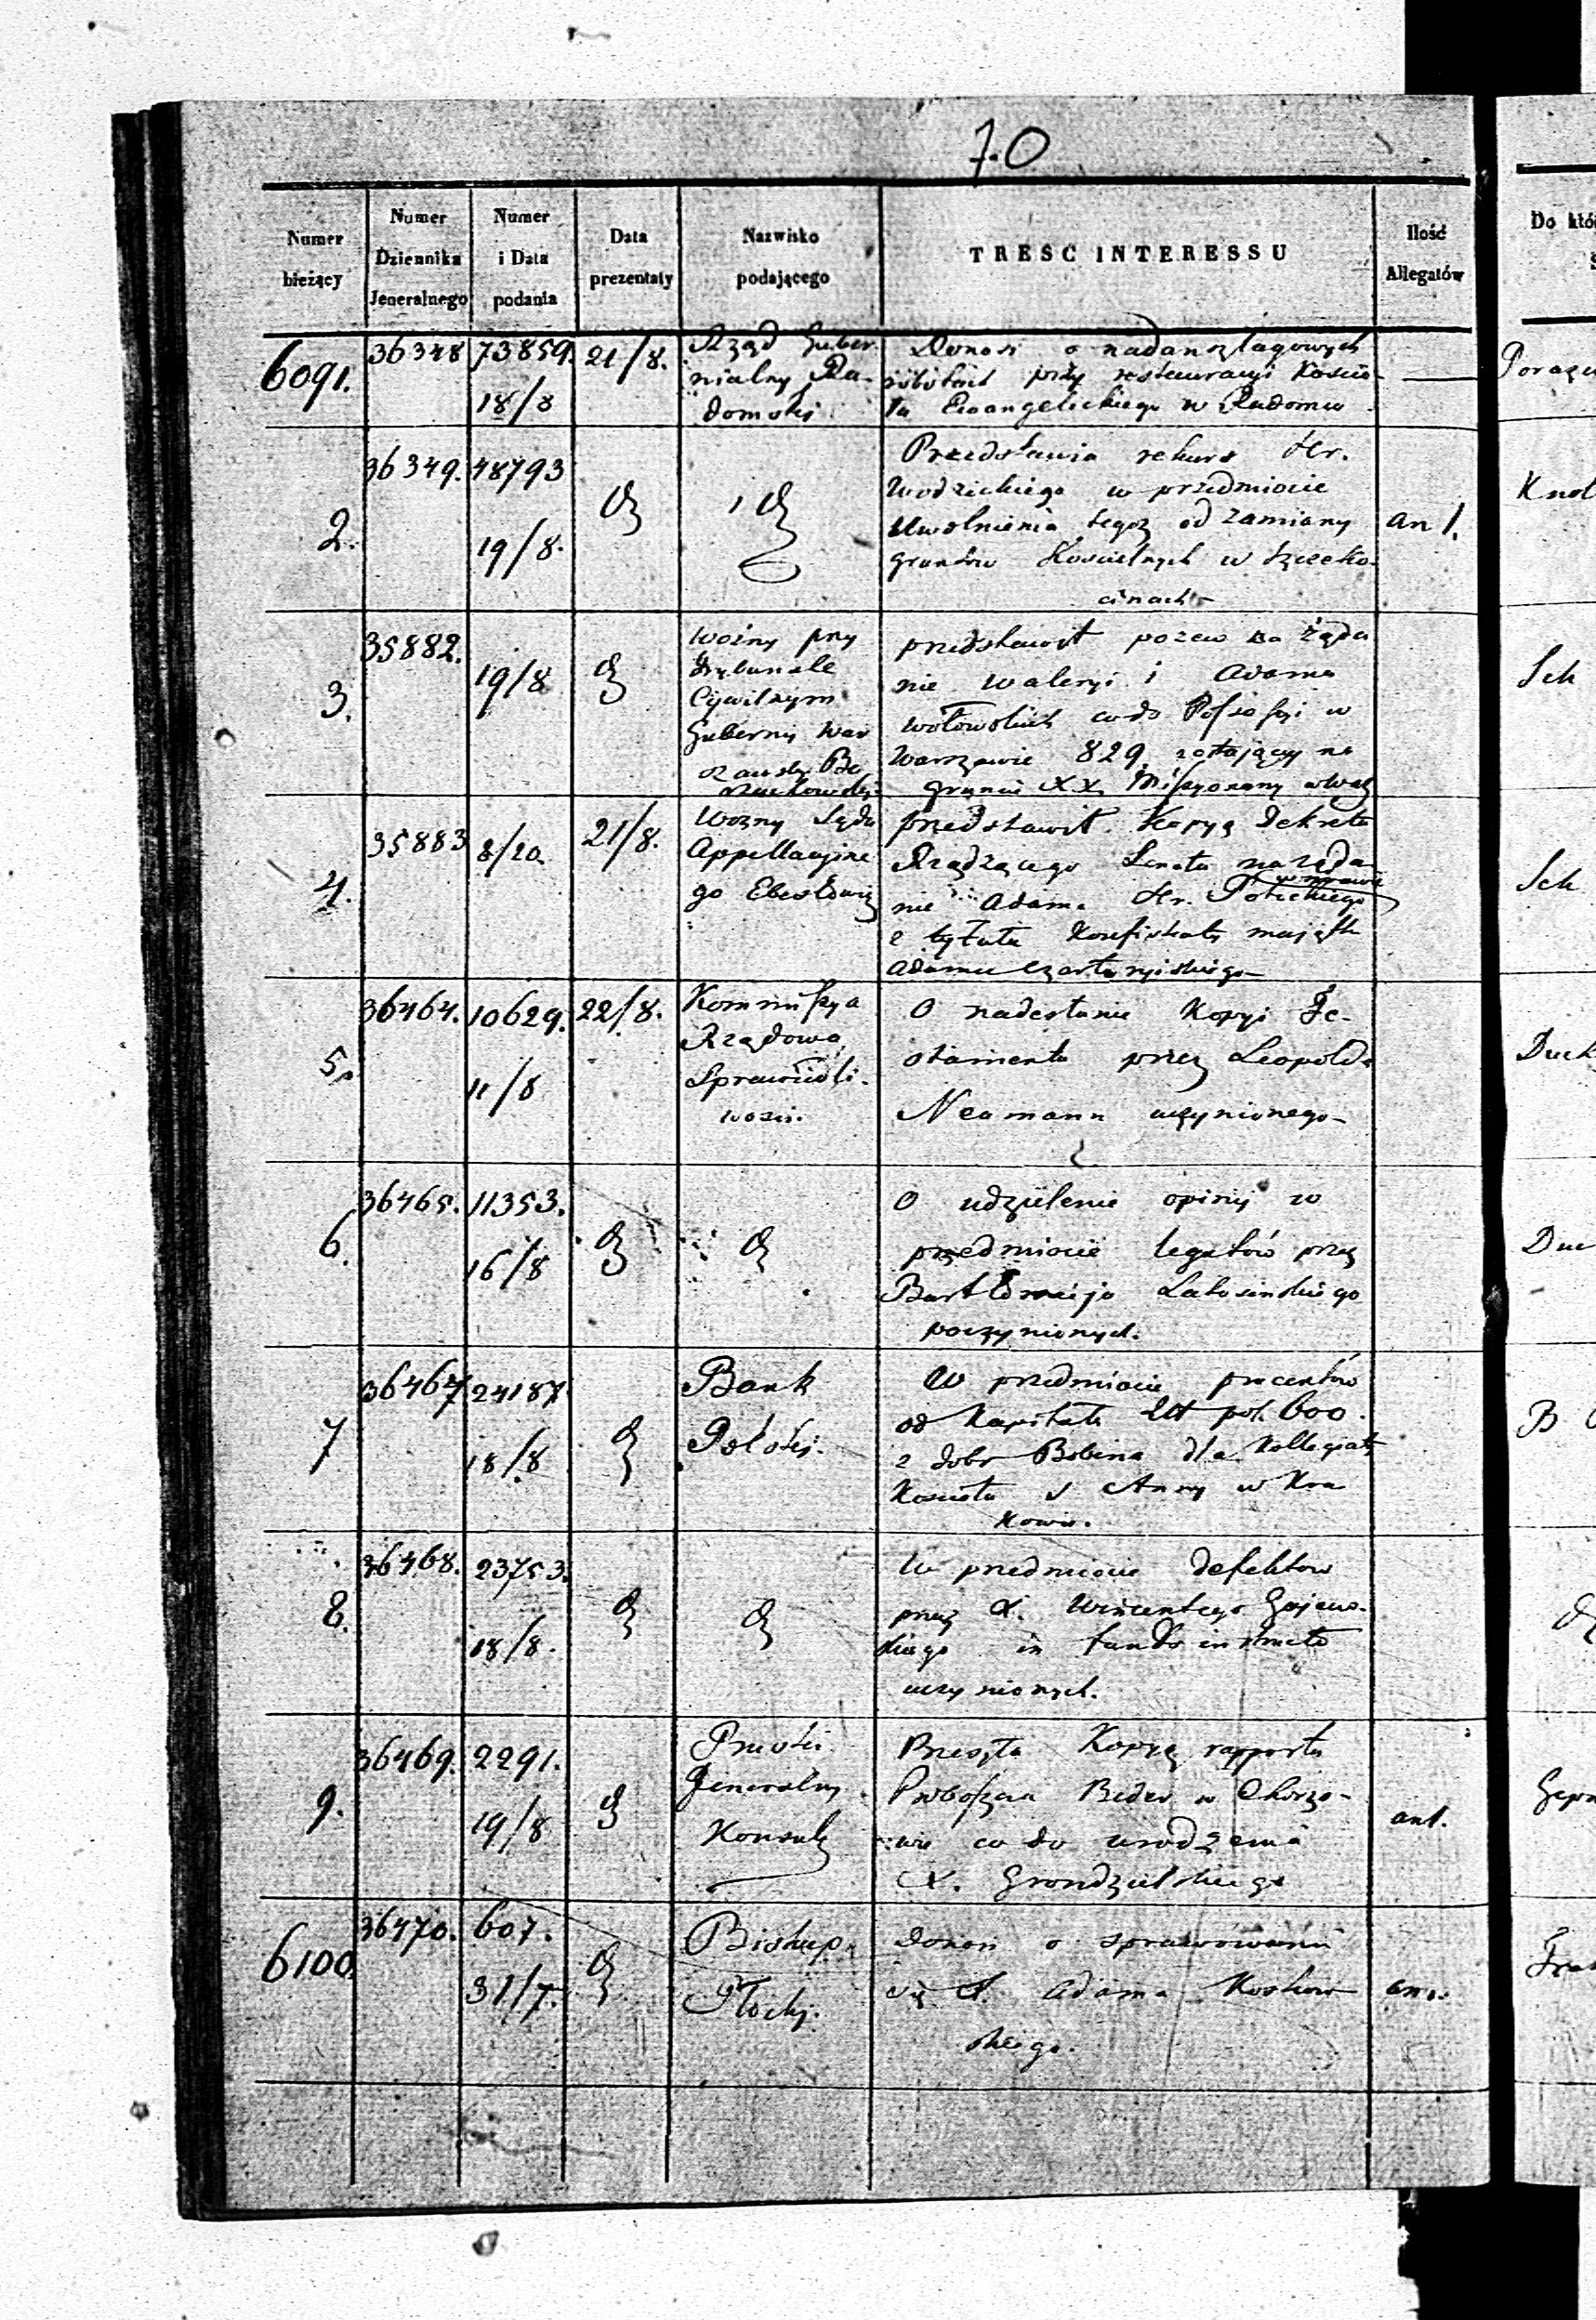 70
Numer bieżący
Numer Dziennika Jeneralnego
Numer i Data podania
Data prezentaty
Nazwisko podającego
TRESC INTERESSU
Ilość Allegatów
Do któ
6091.
36348
73859.
18/8
21/8.
Rząd Guber.
nialny Ra-
domski
Donosi o
robotach przy restauracyi Koscio-
ła Ewangelickiego w Radomiu
2.
36349.
48793
19/8.
Przedstawia rekurs Hr.
Wodzickiego w przedmiocie
Uwolnienia tegoż od zamiany
gruntów Kościelnych w Szczeko-
cinach
an 1.
3.
35882.
19/8
Woźny przy
Trybunale
Cywilnym
Gubernij War
szawsk.
przedstawił pozew na żąda
nie Waleryi i Adama
Wołowskich co do Possessyi w
Warszawie 829
gruncie XX. Missyonarzy
Sch
4.
35883
8/20
21/8.
Woźny Sądu
Appellacyjne
go
przedstawił Kopyą Dekretu
Rządzącego Senatu na żąda
nie Adama Hr. Potockiego w sprawie
z tytułu Konfiskaty majątk
Adama Czartoryiskiego
Sch
5.
36464.
10629.
11/8
22/8.
Kommissya
Rządowa
Sprawiedli.
wości.
O nadesłanie Kopyi Te-
stamentu przez Leopolda
Neumann uczynionego
6.
36465.
11353.
16/8
O udzielenie opinij w
przedmiocie legatów przez
Bartłomieja Latosinskiego
poczynionych.
7
36467
24187
18/8
Bank
Polski.
W przedmiocie procentów
od Kapitału Zł pol. 600.
z dobr Bobina dla Kollegiaty
Kościoła S Anny w Kra
kowie.
8.
36468.
23753.
18/8.
W przedmiocie defektow
przez X. Wincentego Gajews.
kiego in fundo instructo
uczynionych.
9.
36469.
2291.
19/8
Pruski
Generalny
Konsul
Przesyła Kopyą rapportu
Proboszcza Beder w Chorzo-
wie co do urodzenia
X. Grondzielskiego
an 1.
6100.
36470.
607.
31/7.
Biskup
Płocki.
Donosi o sprawowaniu
się X. Adama Koskow
skiego.